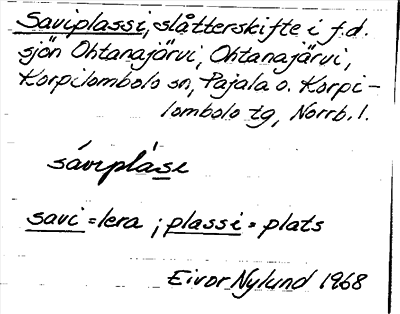 Saviplassi, slåtterskifte i f.d.
sjön Ohtanajärvi, Ohtanajärvi,
Korpilombolo sn, Pajala o. Korpi-
lombolo tg, Norrb. l.
sáviplàse
savi = lera ; plassi = plats
Eivor Nylund 1968